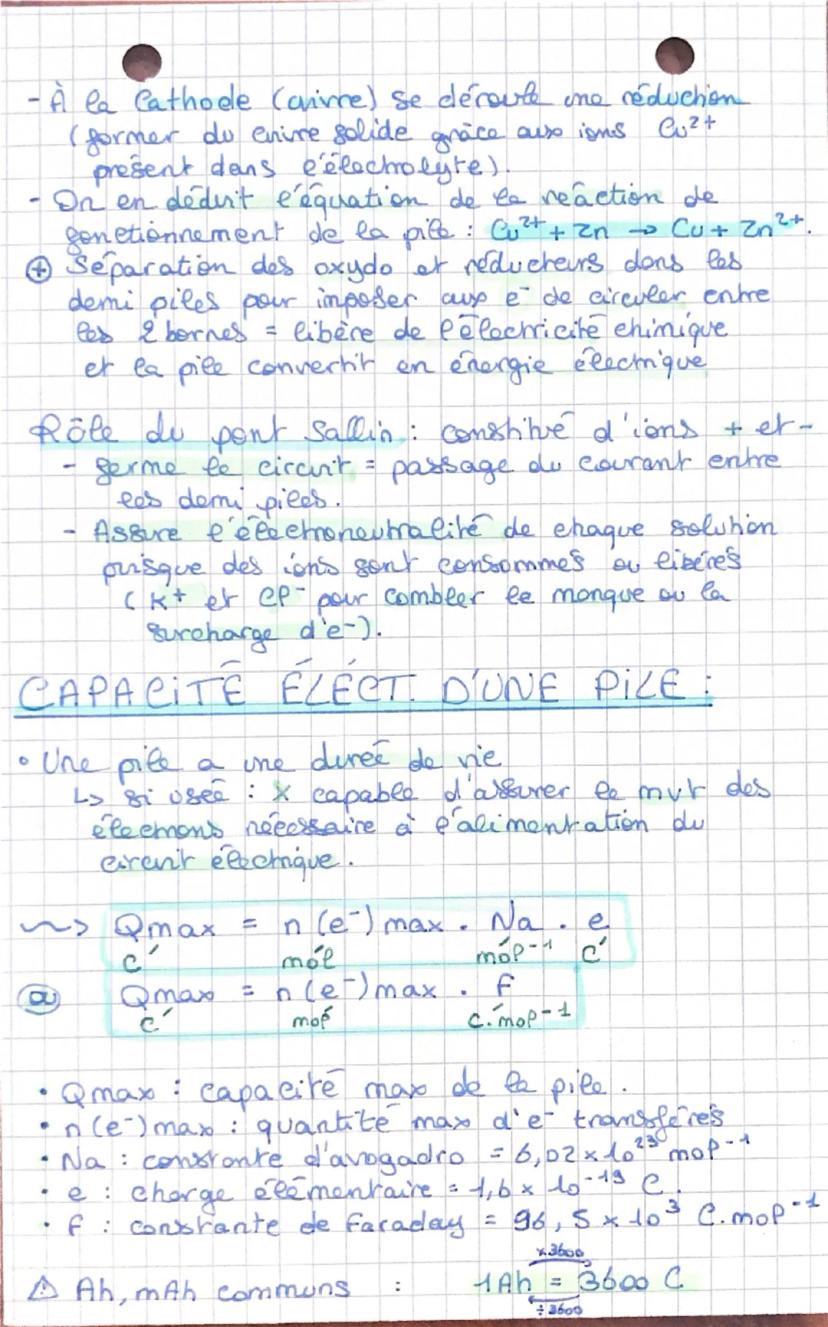 - À la Cathode (cuivre) se déroule une réduction
(former du cuivre solide grâce aux ions Cu²⁺
présent dans l'électrolyte).
- On en déduit l'équation de la réaction de
fonctionnement de la pile : Cu²⁺ + Zn → Cu + Zn²⁺.
⊕ Séparation des oxydo et réducteurs dans les
demi piles pour imposer aux e⁻ de circuler entre
les 2 bornes = libère de l'électricité chimique
et la pile convertit en énergie électrique
Rôle du pont Sallin : constitué d'ions + et -
- ferme le circuit = passage du courant entre
les demi piles.
- Assure l'électroneutralité de chaque solution
puisque des ions sont consommés ou libérés
(K⁺ et Cl⁻ pour combler le manque ou la
surcharge d'e⁻).
CAPACITÉ ÉLÉCT. D'UNE PILE :
• Une pile a une durée de vie
↳ si usée : X capable d'assurer le mvt des
électrons nécessaire à l'alimentation du
circuit électrique.
⇝ Qmax = n(e⁻)max . Na . e
C mol mol⁻¹ C
ou Qmax = n(e⁻)max . F
C mol C.mol⁻¹
• Qmax : capacité max de la pile.
• n(e⁻)max : quantité max d'e⁻ transférés
• Na : constante d'avogadro = 6,02 × 10²³ mol⁻¹
• e : charge élémentaire = 1,6 × 10⁻¹⁹ C.
• F : constante de Faraday = 96,5 × 10³ C.mol⁻¹
×3600
⚠ Ah, mAh communs : 1Ah = 3600 C
÷3600